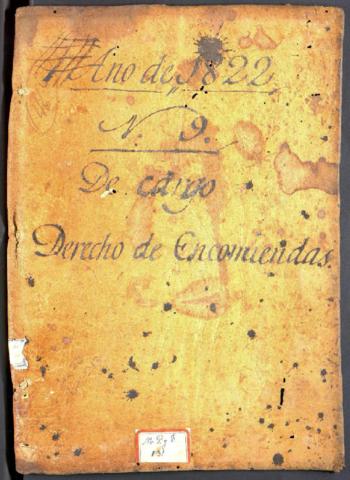 Año de 1822
N. 9.
De cargo
Derecho de Encomiendas.